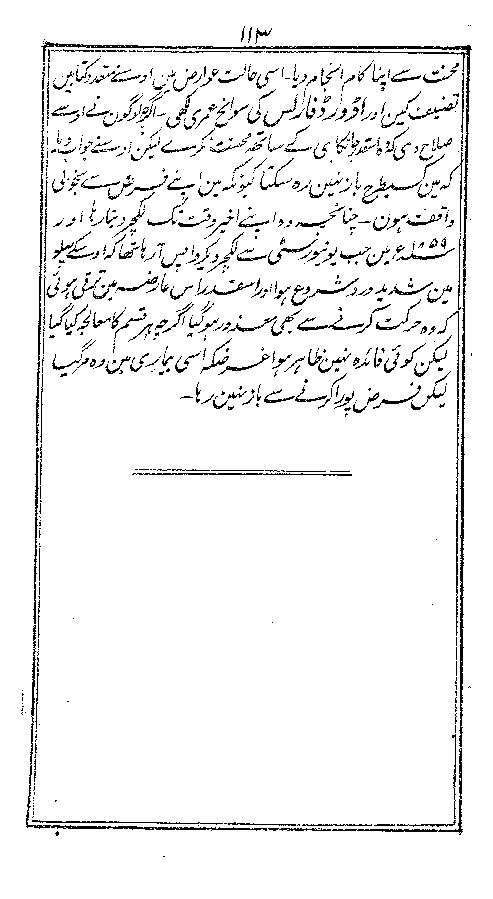 ۱۱۳
محنت سے اپنا کام انجام دیا۔ اسی حالت عوارض مین اوسنے متعدد کتابین
تصنیف کین اور اڈورڈ فاربس کی سوانح عمری لکھی۔ اکثر لوگون نے اوسے
صلاح دی کہ وہ اسقدر جانکاہی کے ساتھ محنت نکرے لیکن اوسنے جواب دیا۔
کہ مین کسیطرح باز نہین رہ سکتا کیونکہ مین اپنے فرض سے بخوبی
واقف ہون۔ چنانچہ وہ اپنے اخیر وقت تک لکچر دیتا رہا اور
۱۸۵۹ء مین جب یونیورسٹی سے لکچر دیکر واپس آرہا تھا کہ اوسکے پہلو
مین شدید درد شروع ہوا اور اسقدر اس عارضہ مین ترقی ہوئی
کہ وہ حرکت کرنے سے بھی معذور ہوگیا اگرچہ ہر قسم کا معالجہ کیا گیا
لیکن کوئی فائدہ نہین ظاہر ہوا غرضکہ اسی بیماری مین وہ مرگیا
لیکن فرض پورا کرنے سے باز نہین رہا۔